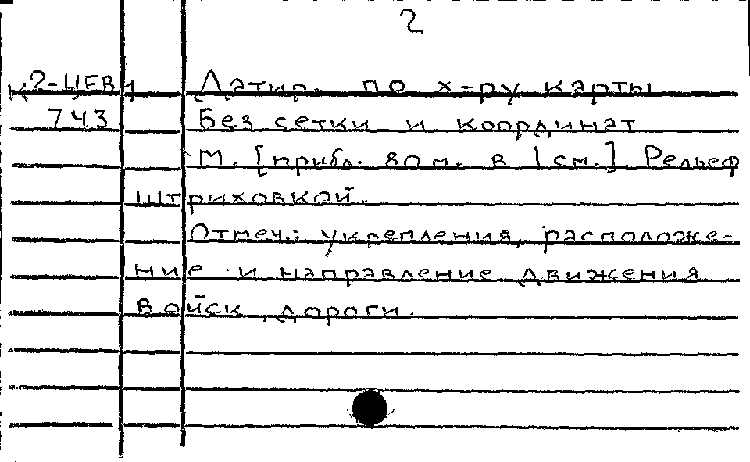 2
К2-ЦЕВ/1 Датир. по х-ру карты
743 Без сетки и координат
М. [прибл. 80 м. в 1 см.] Рельеф
штриховкой.
Отмеч.: укрепления, расположе-
ние и направление движения
войск, дороги.